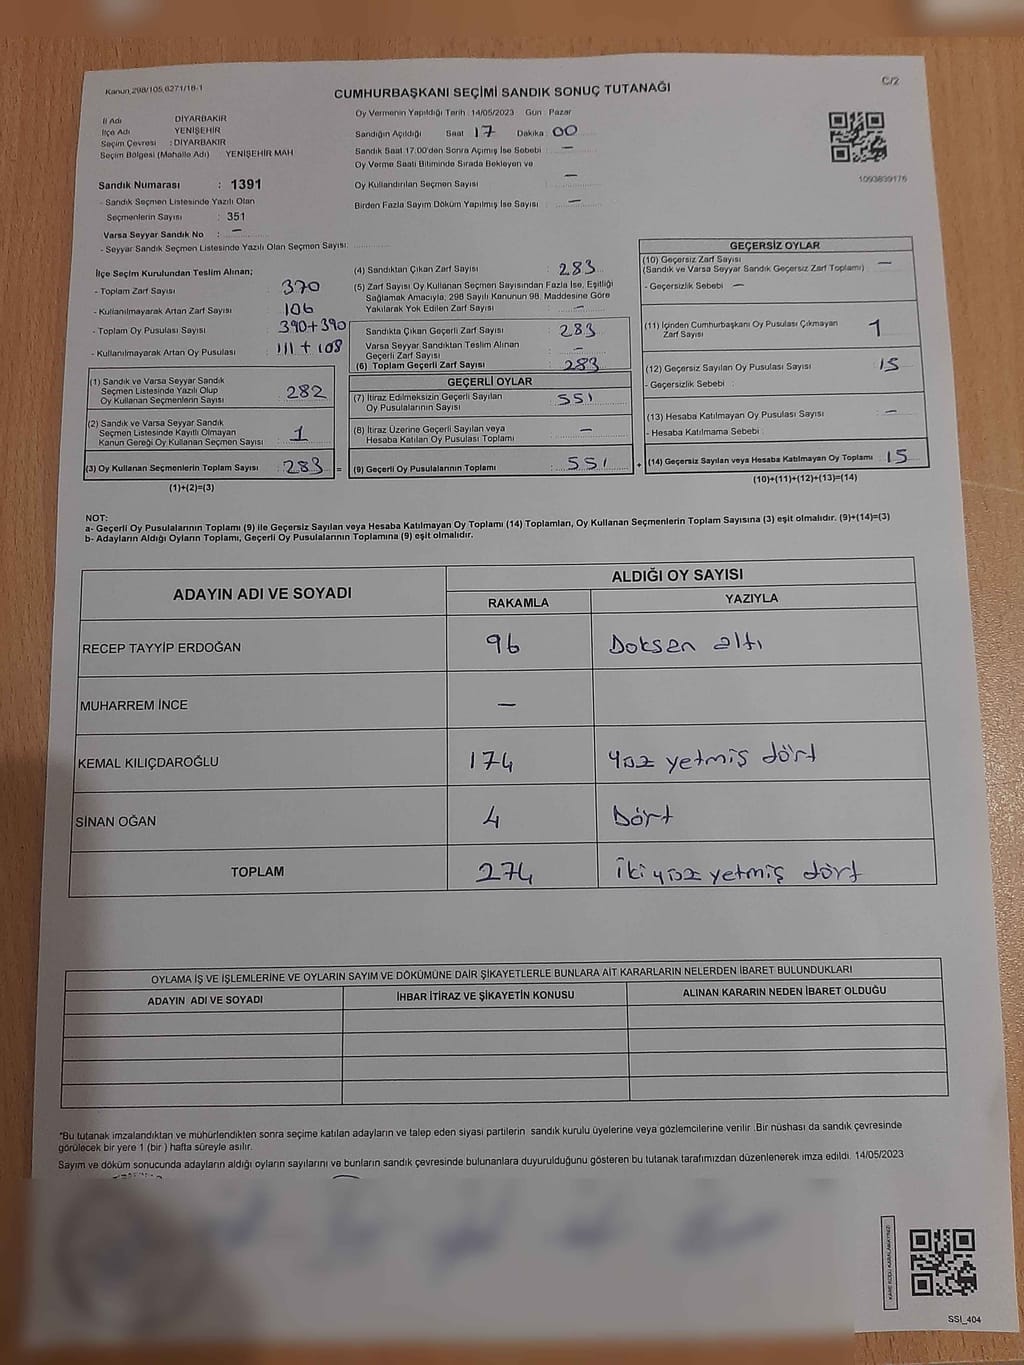 Kanun 298/105,6271/18-1
C/2
CUMHURBAŞKANI SEÇİMİ SANDIK SONUÇ TUTANAĞI
İl Adı DİYARBAKIR
İlçe Adı YENİŞEHİR
Seçim Çevresi : DİYARBAKIR
Seçim Bölgesi (Mahalle Adı) YENİŞEHİR MAH
Sandık Numarası : 1391
- Sandık Seçmen Listesinde Yazılı Olan
Seçmenlerin Sayısı : 351
Varsa Seyyar Sandık No : —
- Seyyar Sandık Seçmen Listesinde Yazılı Olan Seçmen Sayısı:
Oy Vermenin Yapıldığı Tarih : 14/05/2023 Gün : Pazar
Sandığın Açıldığı Saat 17 Dakika 00
Sandık Saat 17:00'den Sonra Açımış İse Sebebi : —
Oy Verme Saati Bitiminde Sırada Bekleyen ve
Oy Kullandırılan Seçmen Sayısı : —
Birden Fazla Sayım Döküm Yapılmış İse Sayısı : —
1093839176
İlçe Seçim Kurulundan Teslim Alınan;
- Toplam Zarf Sayısı : 370
- Kullanılmayarak Artan Zarf Sayısı : 106
- Toplam Oy Pusulası Sayısı : 390+390
- Kullanılmayarak Artan Oy Pusulası : 111 + 108
(1) Sandık ve Varsa Seyyar Sandık
Seçmen Listesinde Yazılı Olup
Oy Kullanan Seçmenlerin Sayısı : 282
(2) Sandık ve Varsa Seyyar Sandık
Seçmen Listesinde Kayıtlı Olmayan
Kanun Gereği Oy Kullanan Seçmen Sayısı : 1
(3) Oy Kullanan Seçmenlerin Toplam Sayısı : 283 =
(1)+(2)=(3)
(4) Sandıktan Çıkan Zarf Sayısı : 283
(5) Zarf Sayısı Oy Kullanan Seçmen Sayısından Fazla İse, Eşitliği
Sağlamak Amacıyla, 298 Sayılı Kanunun 98. Maddesine Göre
Yakılarak Yok Edilen Zarf Sayısı : —
Sandıkta Çıkan Geçerli Zarf Sayısı : 283
Varsa Seyyar Sandıktan Teslim Alınan
Geçerli Zarf Sayısı : —
(6) Toplam Geçerli Zarf Sayısı : 283
GEÇERLİ OYLAR
(7) İtiraz Edilmeksizin Geçerli Sayılan
Oy Pusulalarının Sayısı : 551
(8) İtiraz Üzerine Geçerli Sayılan veya
Hesaba Katılan Oy Pusulası Toplamı : —
(9) Geçerli Oy Pusulalarının Toplamı : 551 +
GEÇERSİZ OYLAR
(10) Geçersiz Zarf Sayısı
(Sandık ve Varsa Seyyar Sandık Geçersiz Zarf Toplamı) : —
- Geçersizlik Sebebi : —
(11) İçinden Cumhurbaşkanı Oy Pusulası Çıkmayan
Zarf Sayısı : 1
(12) Geçersiz Sayılan Oy Pusulası Sayısı : 15
- Geçersizlik Sebebi :
(13) Hesaba Katılmayan Oy Pusulası Sayısı : —
- Hesaba Katılmama Sebebi :
(14) Geçersiz Sayılan veya Hesaba Katılmayan Oy Toplamı : 15
(10)+(11)+(12)+(13)=(14)
NOT:
a- Geçerli Oy Pusulalarının Toplamı (9) ile Geçersiz Sayılan veya Hesaba Katılmayan Oy Toplamı (14) Toplamları, Oy Kullanan Seçmenlerin Toplam Sayısına (3) eşit olmalıdır. (9)+(14)=(3)
b- Adayların Aldığı Oyların Toplamı, Geçerli Oy Pusulalarının Toplamına (9) eşit olmalıdır.
ADAYIN ADI VE SOYADI ALDIĞI OY SAYISI
RAKAMLA YAZIYLA
RECEP TAYYİP ERDOĞAN 96 Doksan altı
MUHARREM İNCE —
KEMAL KILIÇDAROĞLU 174 Yüz yetmiş dört
SİNAN OĞAN 4 Dört
TOPLAM 274 İki yüz yetmiş dört
OYLAMA İŞ VE İŞLEMLERİNE VE OYLARIN SAYIM VE DÖKÜMÜNE DAİR ŞİKAYETLERLE BUNLARA AİT KARARLARIN NELERDEN İBARET BULUNDUKLARI
ADAYIN ADI VE SOYADI İHBAR İTİRAZ VE ŞİKAYETİN KONUSU ALINAN KARARIN NEDEN İBARET OLDUĞU
*Bu tutanak imzalandıktan ve mühürlendikten sonra seçime katılan adayların ve talep eden siyasi partilerin sandık kurulu üyelerine veya gözlemcilerine verilir. Bir nüshası da sandık çevresinde
görülecek bir yere 1 (bir) hafta süreyle asılır.
Sayım ve döküm sonucunda adayların aldığı oyların sayılarını ve bunların sandık çevresinde bulunanlara duyurulduğunu gösteren bu tutanak tarafımızdan düzenlenerek imza edildi. 14/05/2023
SSI_404